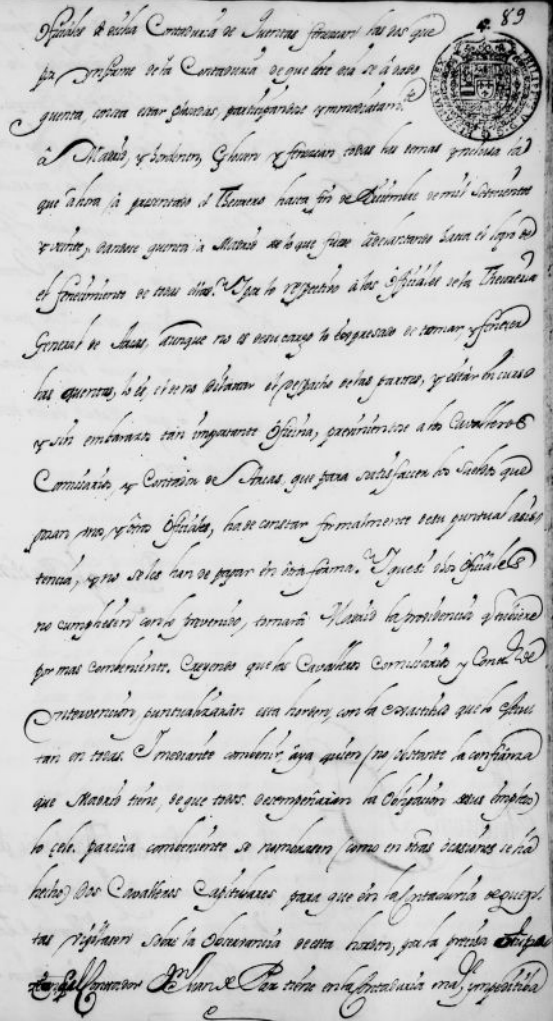 89
Oficiales de dicha Contaduria de Quentas fenezcan las dos que
por ynforme de la Contaduria de que este dia se à dado
quenta, consta estar paradas, participandose ymmediatam.te
à Madrid, y hordenen, y fenezcan todas las demas ynclusa la
que ahora à presentado el Thesorero hasta fin de Diziembre de mil Setezientos
y veinte, dandose quenta à Madrid de lo que fuere adelantando hasta el logro de
el fenezimiento de todas ellas. Y por lo respectivo a los Ofiziales de la Thesoreria
General de Sisas, aunque no es de su cargo lo expresado de tomar, y fenezer
las quentas, lo es, el de no dilatar el despacho de las partes, y estar en curso
y sin embarazo tan importante Ofizina, previniendose a los Cavalleros
Comisarios, y Contador de Sisas, que para satisfacer los sueldos que
gozan unos, y otros Ofiziales, ha de constar formalmente de su puntual asis-
tencia, y no se les han de pagar en otra forma. Y que si dhos ofiziales
no cumpliesen con lo prevenido, tomarà Madrid la providencia que tubiere
por mas combeniente. Creyendo que los Cavalleros Comisarios y Cont.r de
yntervencion, puntualizaràn esta horden, con la exactitud que lo
tan en todas. Y mediante combenir, aya quien (no obstante la confianza
que Madrid tiene, de que todos desempeñaràn la Obligazion de sus empleos)
lo zele. parezia combeniente se nombrasen (como en otras ocasiones se ha
hecho) Dos Cavalleros Capitulares para que en la Contaduria de Quen-
tas vijilasen sobre la Observancia de esta horden, por la precisa
Contador D.n Juan de Paz tiene en la Contaduria